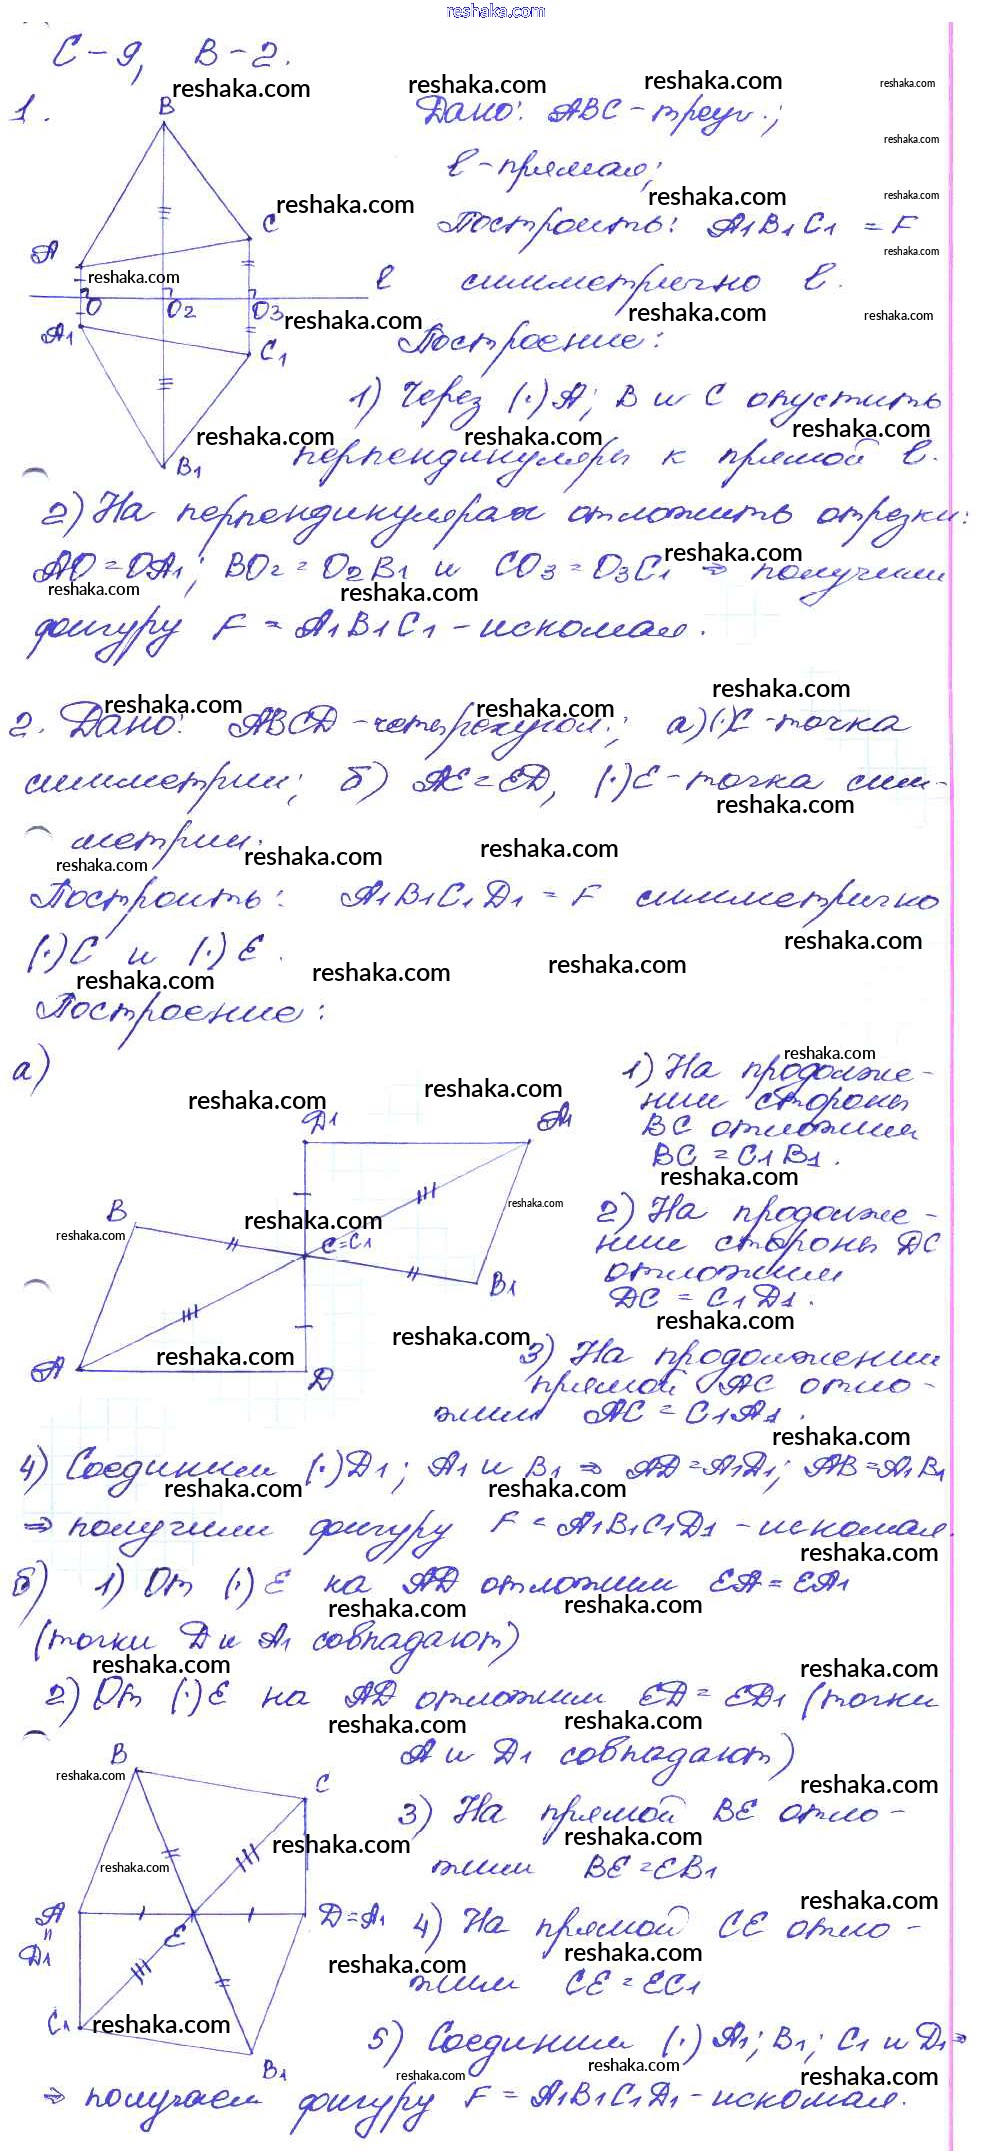 reshaka.com
С-9, В-2.
1.
Дано: ABC - треуг.;
l - прямая;
Построить: A1B1C1 = F
симметрично l.
B
C
A
l
O O2 O3
A1
C1
B1
Построение:
1) Через (·) A; B и C опустить
перпендикуляры к прямой l.
2) На перпендикулярах отложить отрезки:
AO=OA1; BO2=O2B1 и CO3=O3C1 ⇒ получим
фигуру F = A1B1C1 - искомая.
2. Дано: ABCD - четырехугол.; а) (·)C - точка
симметрии; б) AE=ED, (·)E - точка сим-
метрии.
Построить: A1B1C1D1 = F симметрично
(·)C и (·)E.
Построение:
а)
D1 A1
B
C=C1
B1
A D
1) На продолже-
нии стороны
BC отложим
BC = C1B1.
2) На продолже-
нии стороны DC
отложим
DC = C1D1.
3) На продолжении
прямой AC отло-
жим AC = C1A1.
4) Соединим (·)D1; A1 и B1 ⇒ AD=A1D1; AB=A1B1
⇒ получим фигуру F = A1B1C1D1 - искомая.
б) 1) От (·)E на AD отложим EA=EA1
(точки D и A1 совпадают)
2) От (·)E на AD отложим ED=ED1 (точки
A и D1 совпадают)
B
C
A
=
D1
E
D=A1
C1
B1
3) На прямой BE отло-
жим BE=EB1
4) На прямой CE отло-
жим CE=EC1
5) Соединим (·) A1; B1; C1 и D1 ⇒
⇒ получаем фигуру F = A1B1C1D1 - искомая.